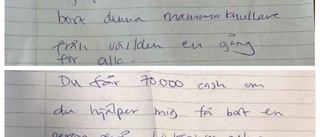 bort denna mammaknullare
från världen en gång
för alla.
Du får 70.000 cash om
du hjälper mig få bort en